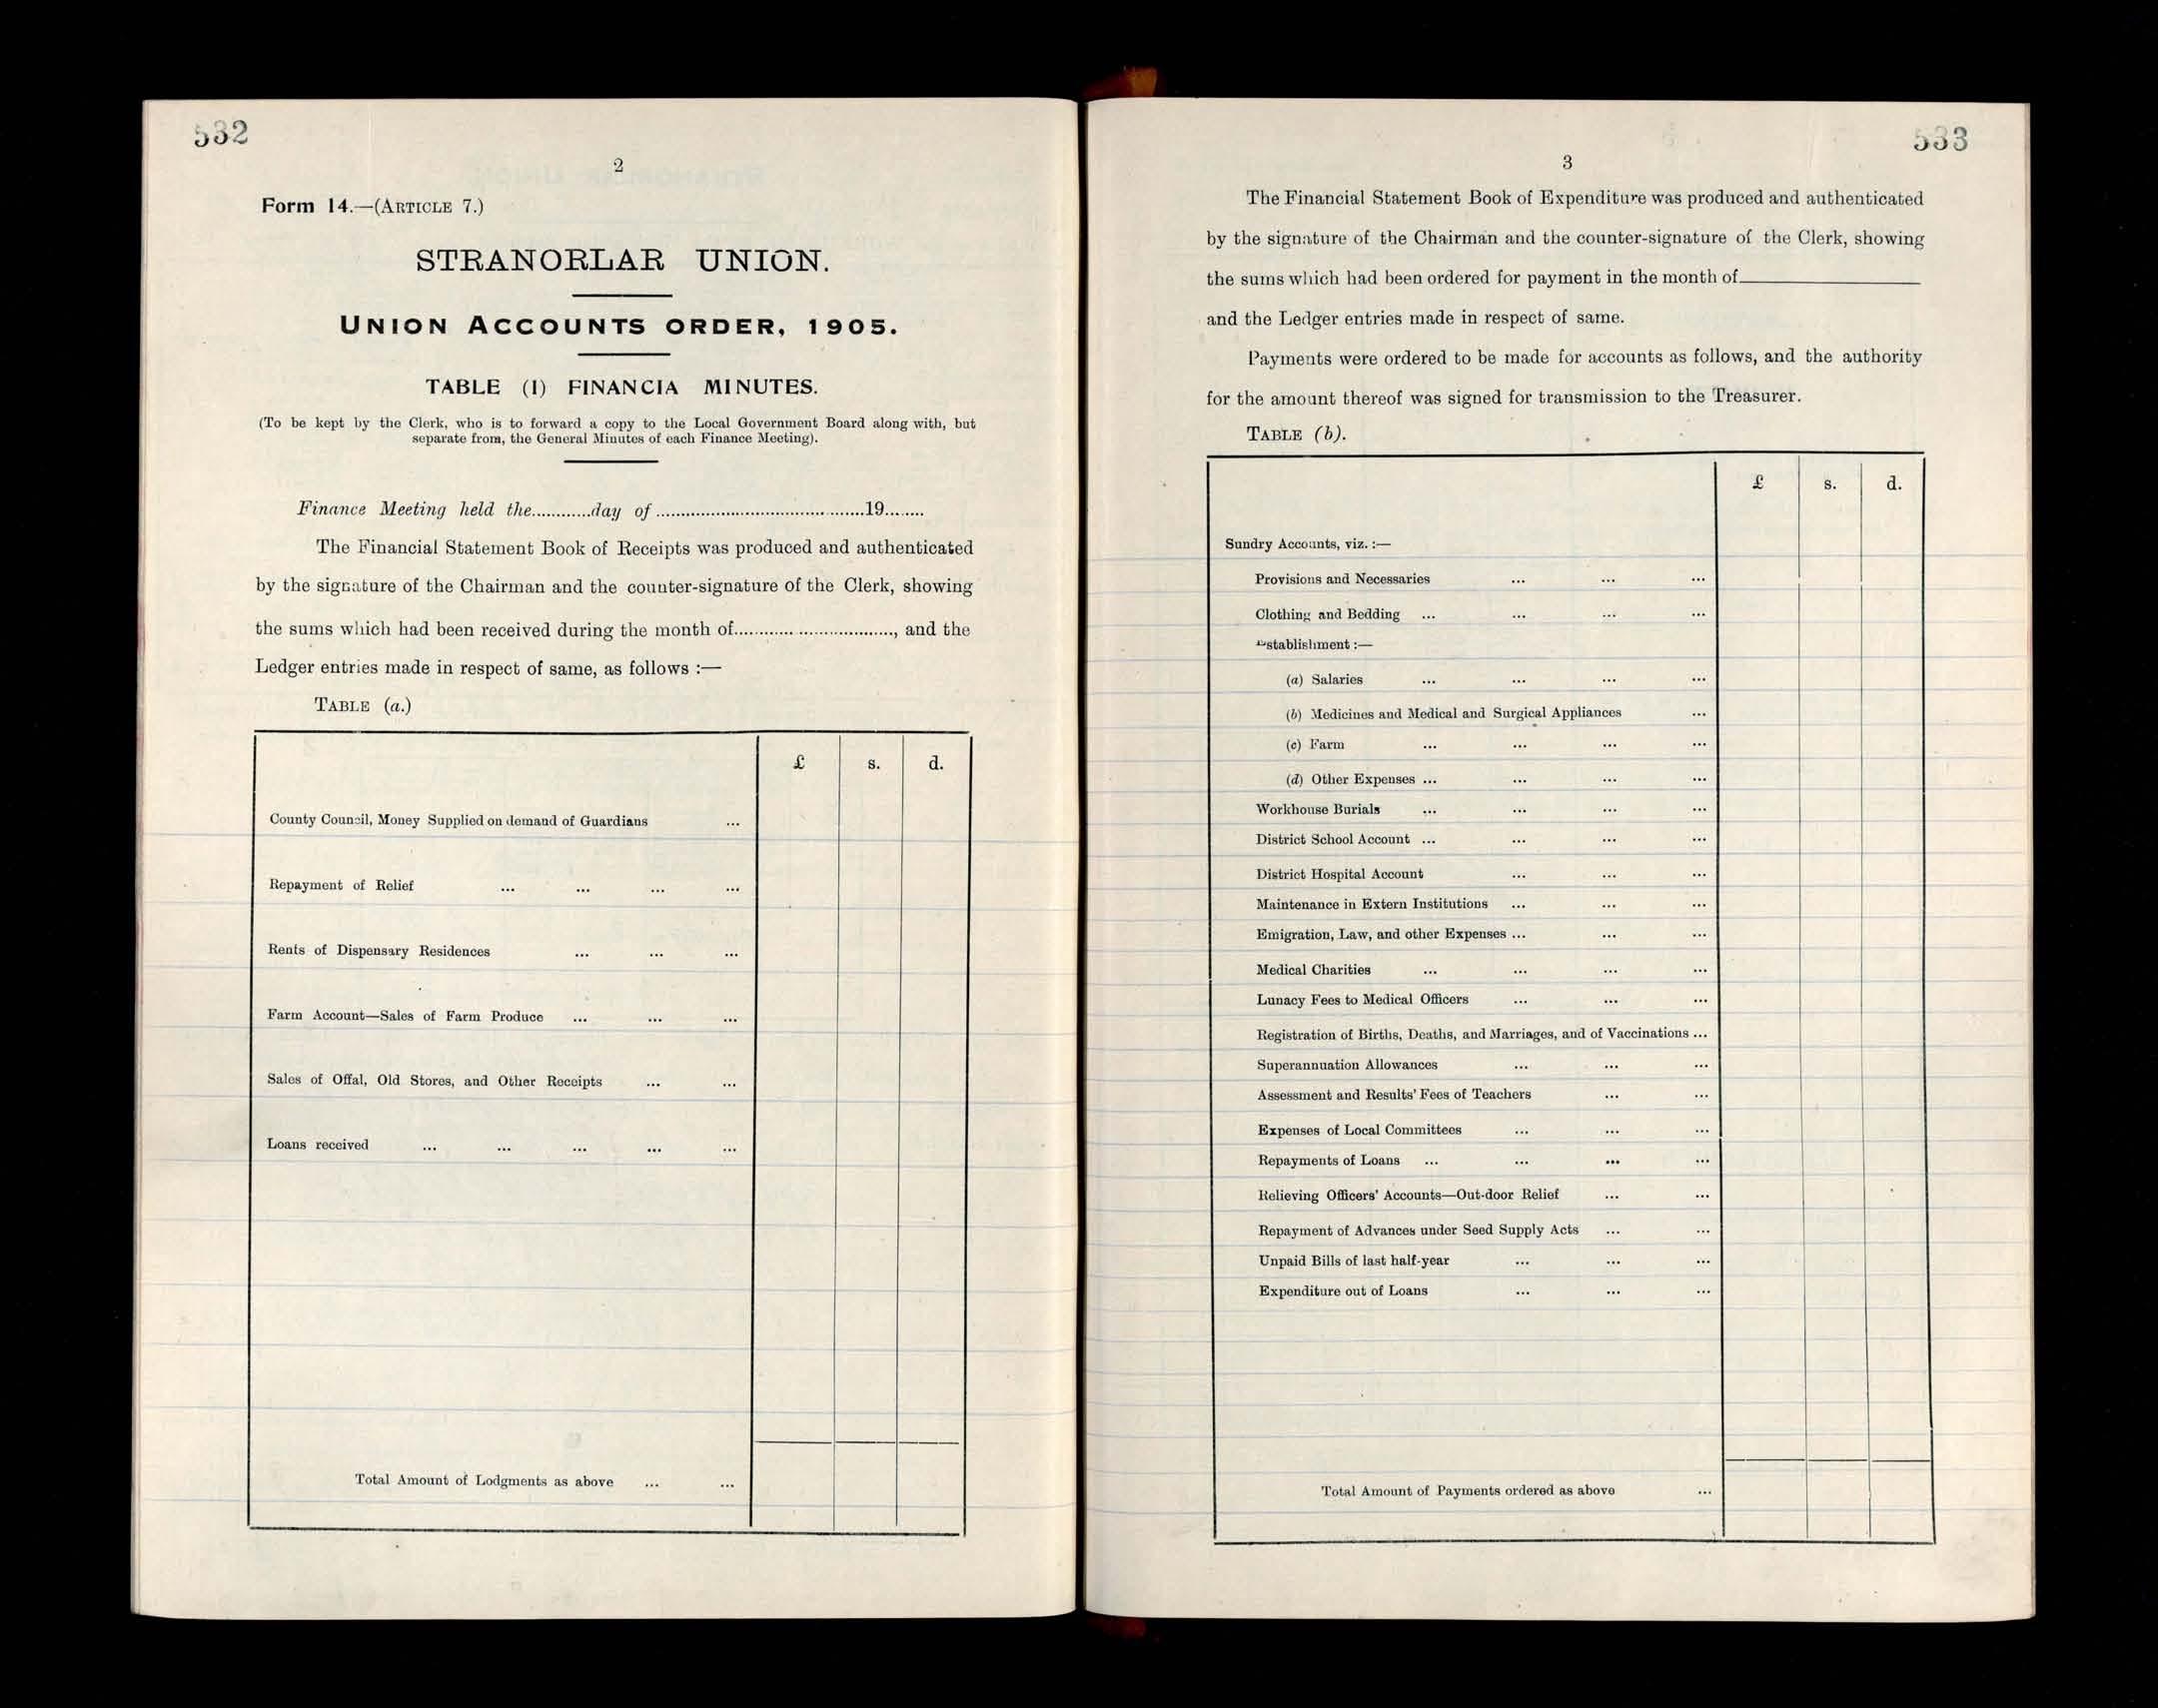 532
2
Form 14.—(ARTICLE 7.)
STRANORLAR UNION.
UNION ACCOUNTS ORDER, 1905.
TABLE (I) FINANCIA MINUTES.
(To be kept by the Clerk, who is to forward a copy to the Local Government Board along with, but
separate from, the General Minutes of each Finance Meeting).
Finance Meeting held the............day of..........................................19........
The Financial Statement Book of Receipts was produced and authenticated
by the signature of the Chairman and the counter-signature of the Clerk, showing
the sums which had been received during the month of................................, and the
Ledger entries made in respect of same, as follows :—
TABLE (a.)
£ s. d.
County Council, Money Supplied on demand of Guardians ...
Repayment of Relief ... ... ... ...
Rents of Dispensary Residences ... ... ...
Farm Account—Sales of Farm Produce ... ... ...
Sales of Offal, Old Stores, and Other Receipts ... ...
Loans received ... ... ... ... ...
Total Amount of Lodgments as above ... ...
533
3
The Financial Statement Book of Expenditure was produced and authenticated
by the signature of the Chairman and the counter-signature of the Clerk, showing
the sums which had been ordered for payment in the month of
and the Ledger entries made in respect of same.
Payments were ordered to be made for accounts as follows, and the authority
for the amount thereof was signed for transmission to the Treasurer.
TABLE (b).
£ s. d.
Sundry Accounts, viz. :—
Provisions and Necessaries ... ... ...
Clothing and Bedding ... ... ... ...
Establishment :—
(a) Salaries ... ... ... ...
(b) Medicines and Medical and Surgical Appliances ...
(c) Farm ... ... ... ...
(d) Other Expenses ... ... ... ...
Workhouse Burials ... ... ... ...
District School Account ... ... ... ...
District Hospital Account ... ... ...
Maintenance in Extern Institutions ... ... ...
Emigration, Law, and other Expenses ... ... ...
Medical Charities ... ... ... ...
Lunacy Fees to Medical Officers ... ... ...
Registration of Births, Deaths, and Marriages, and of Vaccinations ...
Superannuation Allowances ... ... ...
Assessment and Results' Fees of Teachers ... ...
Expenses of Local Committees ... ... ...
Repayments of Loans ... ... ... ...
Relieving Officers' Accounts—Out-door Relief ... ...
Repayment of Advances under Seed Supply Acts ... ...
Unpaid Bills of last half-year ... ... ...
Expenditure out of Loans ... ... ...
Total Amount of Payments ordered as above ...